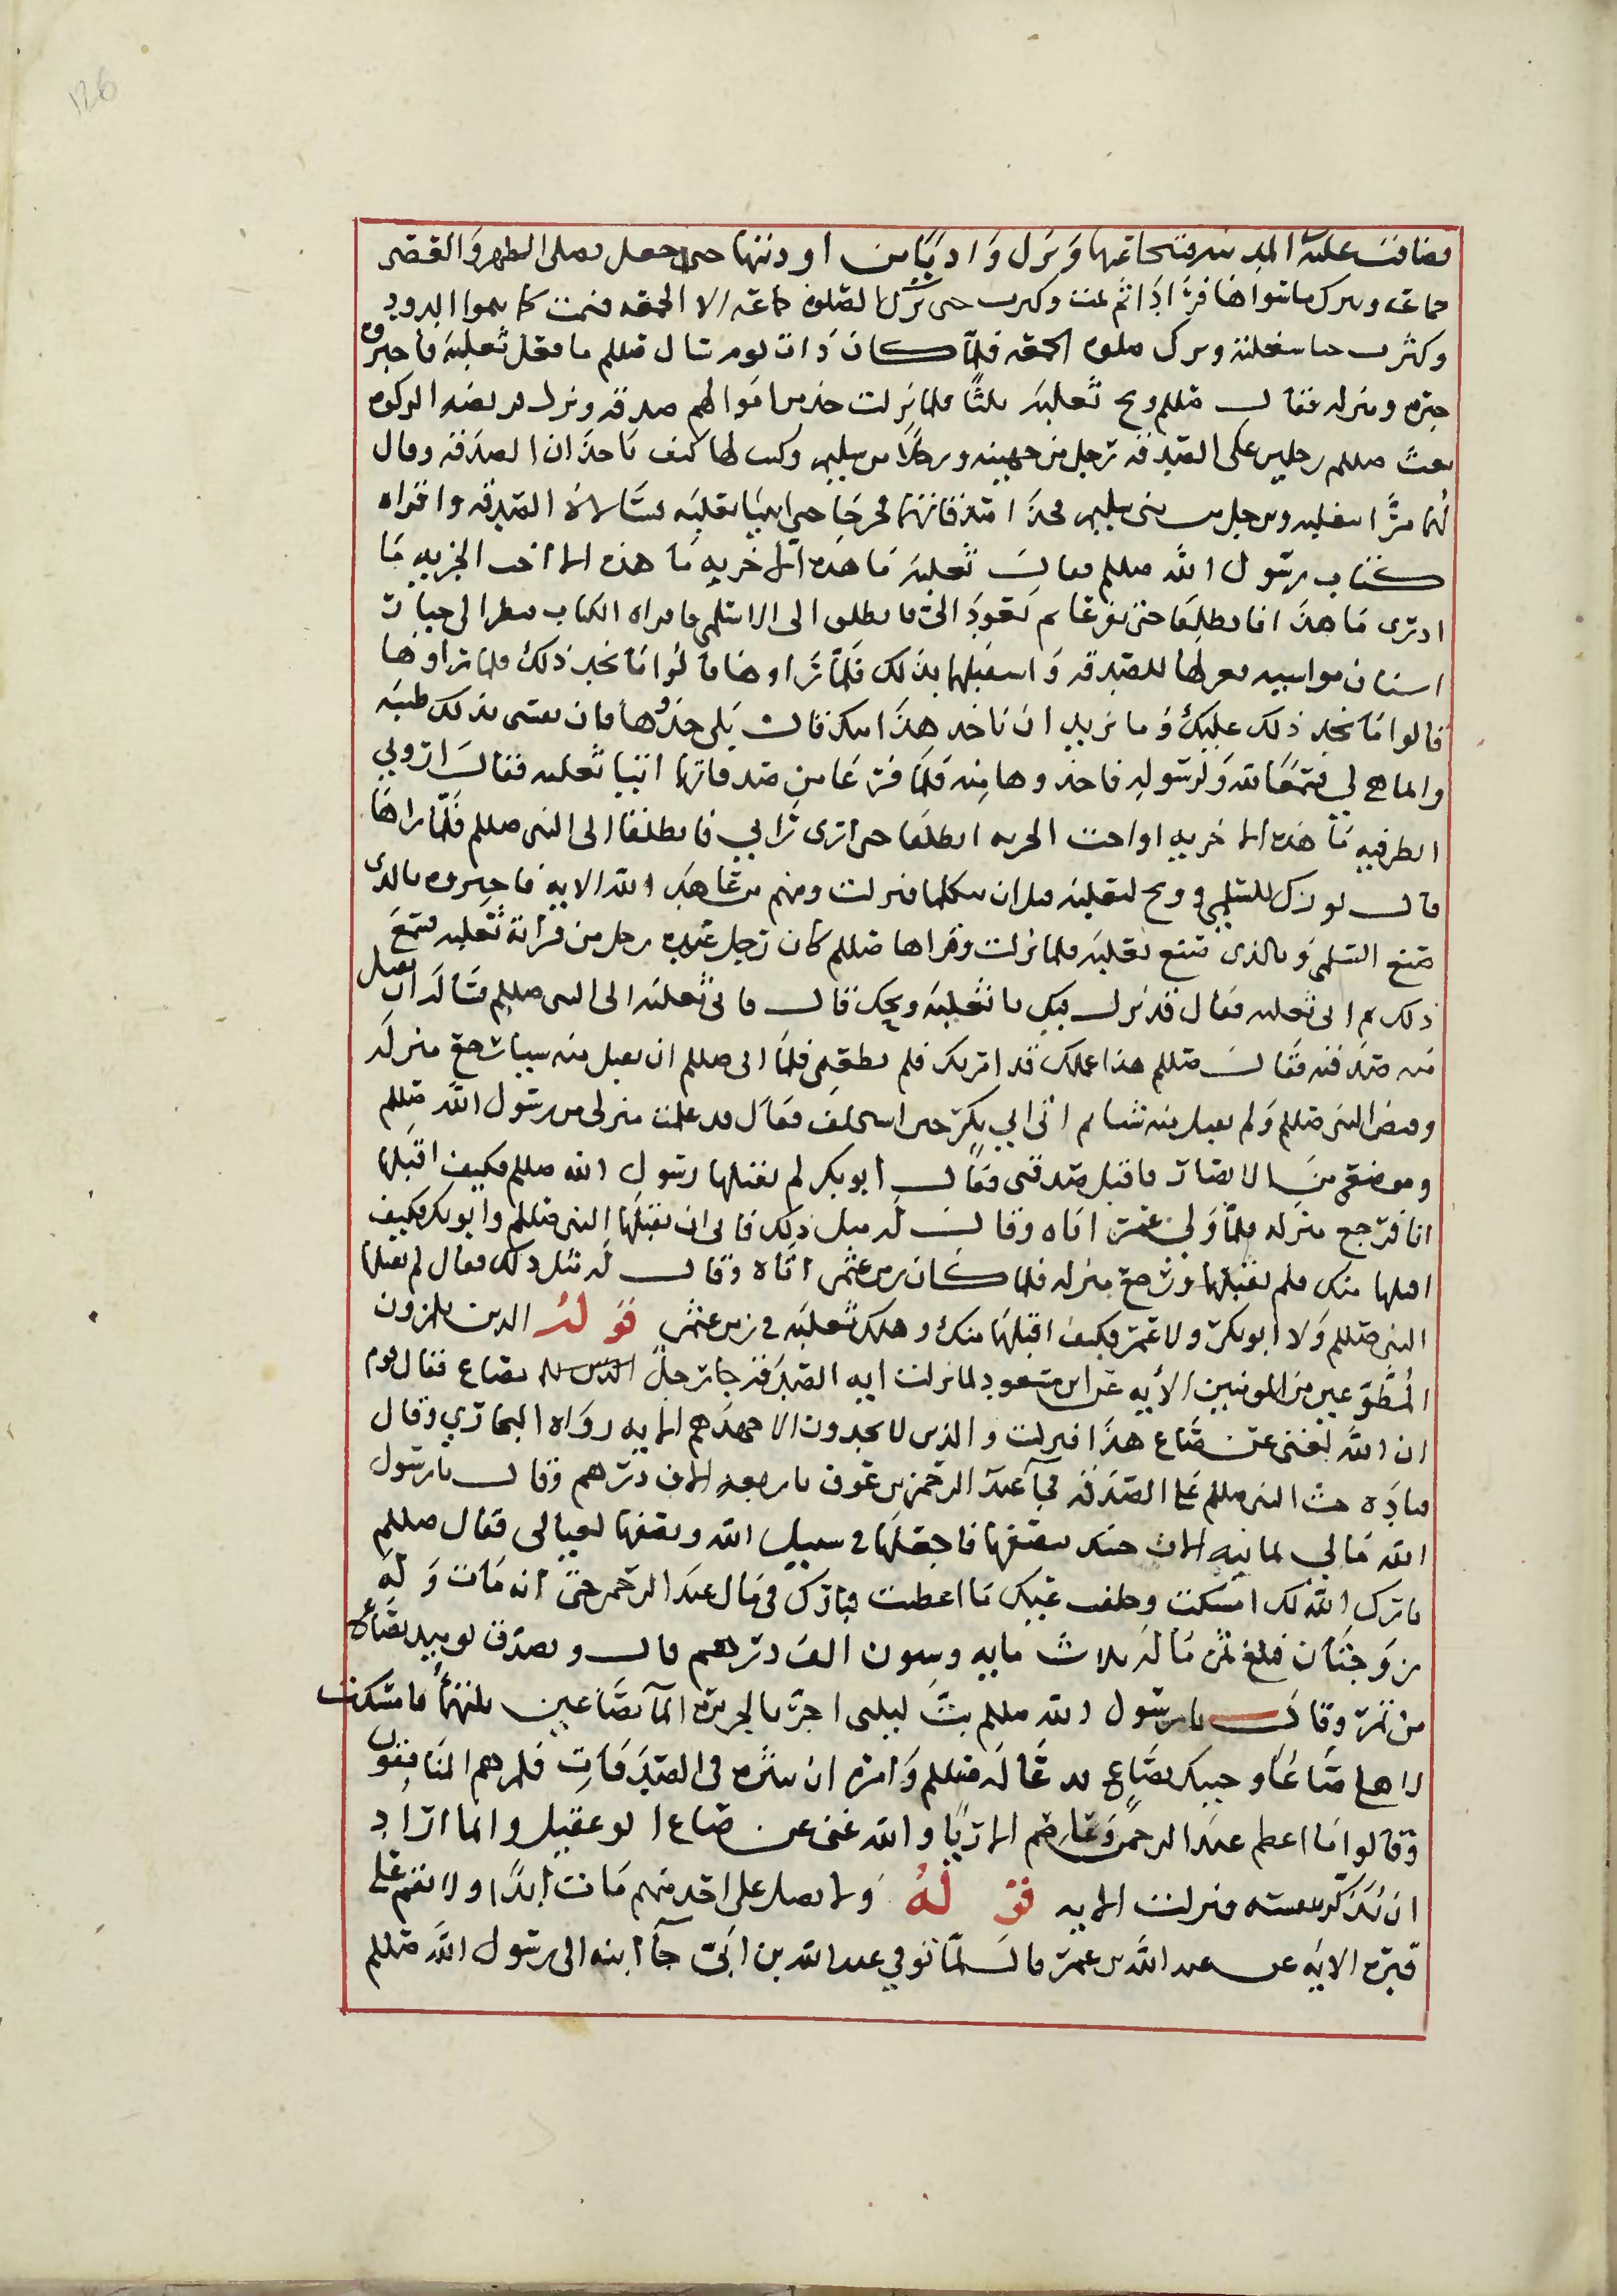 فضاقت عليه المدينة فتنحا عنها ونزل واديا من اوديتها حتى جعل يصلى الظهر والعصر
جماعة ويترك ما سواها فرادا ثم نمت وكبرت حتى ترك الصلوة جماعة الا الجمعه فنمت كما ينموا الدود
وكثرت حتا شغلته وترك صلوة الجمعه فلما كان ذات يوم سال صللم ما فعل ثعلبة فاخبروه
خبره ومنزله فقال صللم ويح ثعلبة ثلثا فلما نزلت خذ من اموالهم صدقه ونزل فريضة الزكوه
بعث صللم رجلين على الصدقه رجل من جهينه ورجلا من سليم وكتب لهما كيف ياخذان الصدقه وقال
لهما مرا بثعلبه ورجل من بنى سليم فخذا صدقاتهما فخرجا حتى اتيا ثعلبة فسالاه الصدقه واقراه
كتاب رسول الله صللم فقال ثعلبة ما هذه الا جزيه ما هذه الا اخت الجزيه ما
ادرى ما هذا انطلقا حتى تفرغا ثم تعودا الى فانطلق الى الاسلمى فاقراه الكتاب فنظر الى خيار
اسنان مواشيه فعزلها للصدقه واستقبلهما بذلك فلما راوها قالوا ما نجد ذلك فلما راوها
قالوا ما نجد ذلك عليك وما نريد ان ناخذ هذا منك قال بلى خذوها فان نفسى بذلك طيبه
وانما هى لي فيهما لله ولرسوله فاخذوها منه فلما فرغا من صدقاتهما اتيا ثعلبه فقال اروني
انظر فيه ما هذه الا جزيه او اخت الجزيه انطلقا حتى ارى رايي فانطلقا الى النبى صللم فلما راهما
قال بورك للسلمى وويح لثعلبه قبل ان يكلماه فنزلت ومنهم من عاهد الله الايه فاخبروه بالذى
صنع السلمى وبالذى صنع ثعلبة فلما نزلت وقراها صللم كان رجل عنده رجل من قرابة ثعلبه فسمع
ذلك ثم اتى ثعلبه فقال قد نزل فيك يا ثعلبة ويحك قال فاتى ثعلبة الى النبى صللم فساله ان يقبل
منه صدقته فقال صللم هذا عملك قد امرتك فلم تطعنى فلما ابى صللم ان يقبل منه سيا رجع منزله
وقبض النبى صللم ولم يقبل منه شيا ثم اتى ابي بكر حين استخلف فقال قد علمت منزلى من رسول الله صللم
وموضعى من الانصار فاقبل صدقتى فقال ابو بكر لم يقبلها رسول الله صللم فكيف اقبلها
انا فرجع منزله فلما ولى عمر اتاه وقال له مثل ذلك فابى ان يقبلها النبى صللم وابو بكر فكيف
اقبلها منك فلم يقبلها ورجع منزله فلما كان زمن عثمن اتاه وقال له مثل ذلك فقال لم يقبلها
النبى صللم ولا ابو بكر ولا عمر فكيف اقبلها منك وهلك ثعلبه في زمن عثمن قوله الذين يلمزون
المطوعين من المومنين الايه عن ابن مسعود لما نزلت ايه الصدقه جا رجل بصاع فقال قوم
ان الله لغنى عن صاع هذا فنزلت والذين لا يجدون الا جهدهم الايه رواه البخاري وقال
قتاده حث النبى صللم على الصدقه فجا عبد الرحمن بن عوف باربعه الاف درهم وقال يا رسول
الله مالي ثمانيه الاف جئتك بنصفها فاجعلها في سبيل الله ونصفها لعيالى فقال صللم
بارك الله لك امسكت وخلف عليك ما اعطيت فبارك فى مال عبد الرحمن حتى انه مات وله
زوجتان فبلغ ثمن ماله ثلاث مايه وستون الف درهم قال وتصدق يوميد بصاع
من تمر وقال يا رسول الله صللم بت ليلتى اجر بالجرير الما بصاعين ثلثهما فامسكت
لاهلى صاعا وجيتك بصاع فدعا له صللم وامره ان ينثره في الصدقات فلمزهم المنافقون
وقالوا ما اعطى عبد الرحمن وعاصم الا ريا والله غنى عن صاع ابو عقيل وانما اراد
ان يذكر بنفسه فنزلت الايه قوله ولا تصل على احد منهم مات ابدا ولا تقم على
قبره الايه عن عبد الله بن عمر قال لما توفي عبد الله بن ابى جا ابنه الى رسول الله صللم